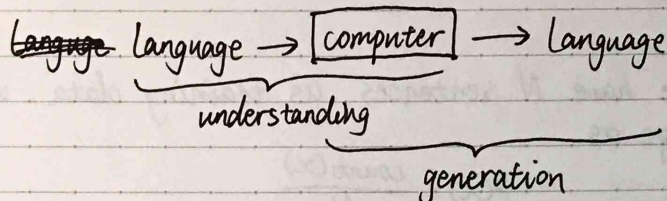 Languge language → computer → language
understanding
generation